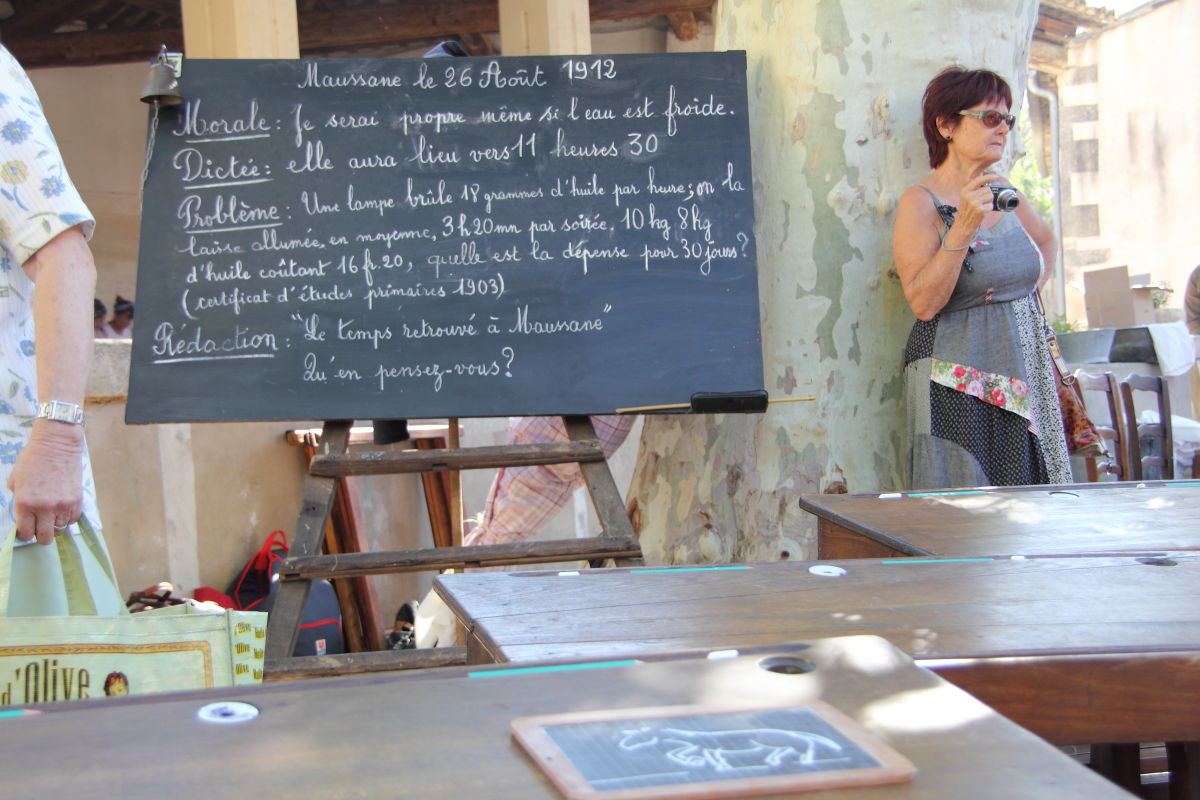 Maussane le 26 Août 1912
Morale : Je serai propre même si l'eau est froide.
Dictée : elle aura lieu vers 11 heures 30
Problème : Une lampe brûle 18 grammes d'huile par heure ; on la
laisse allumée, en moyenne, 3h20mn par soirée. 10 kg 8 hg
d'huile coûtant 16 fr. 20, quelle est la dépense pour 30 jours ?
(certificat d'études primaires 1903)
Rédaction : "Le temps retrouvé à Maussane"
Qu'en pensez-vous ?
d'Olive